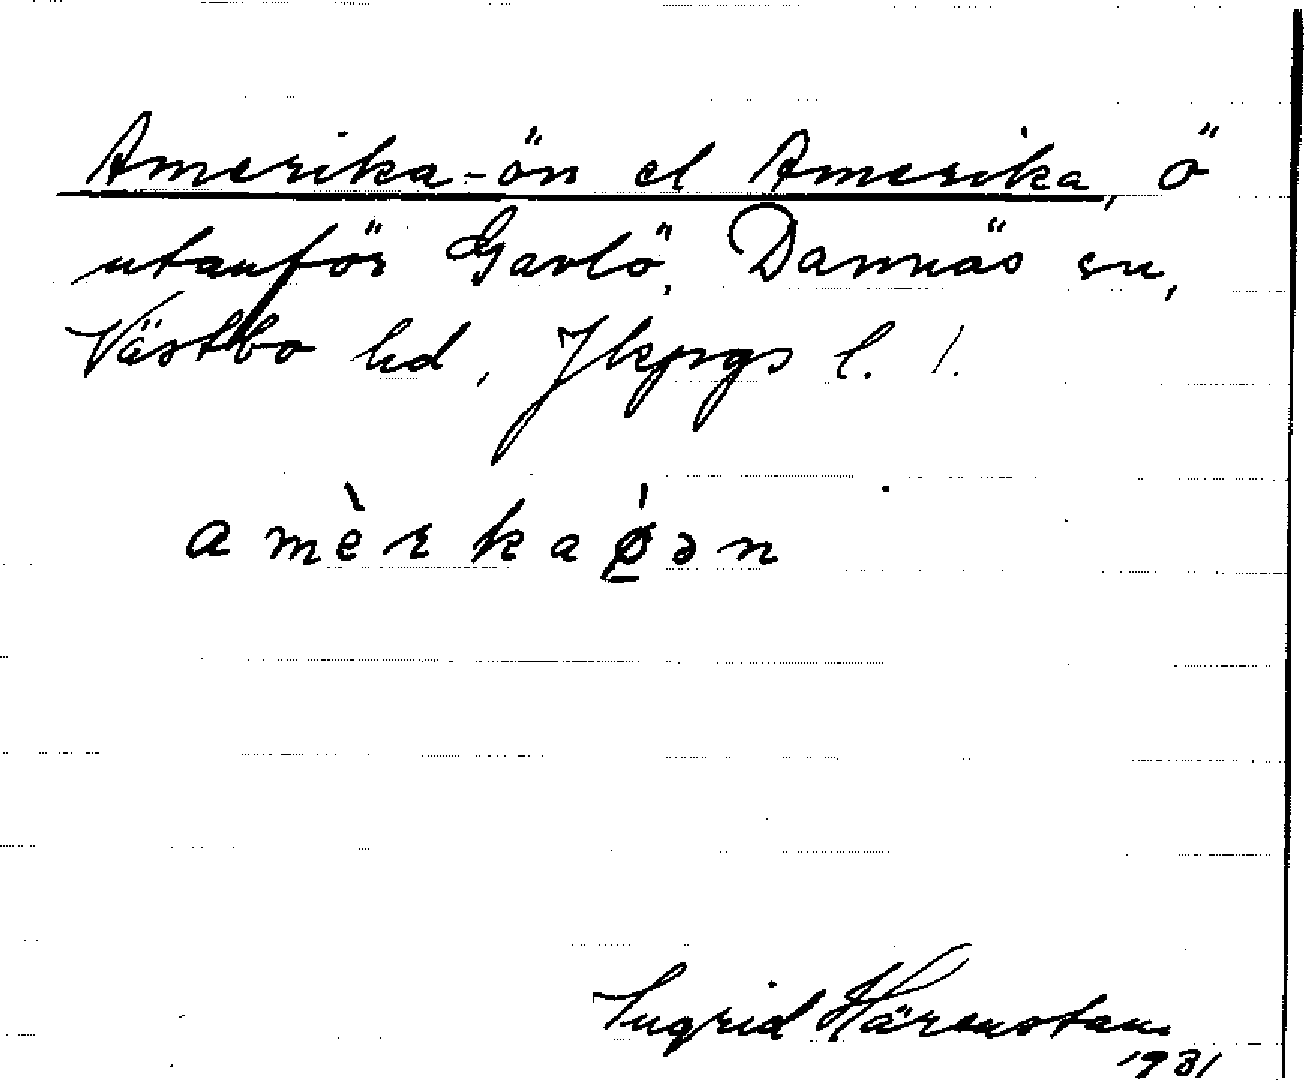 Amerika-ön el Amerika, ö
utanför Gavlö, Dannäs sn,
Västbo hd, Jkpgs l. 1.
amèrkaǿən
Ingrid Härenstam
1931